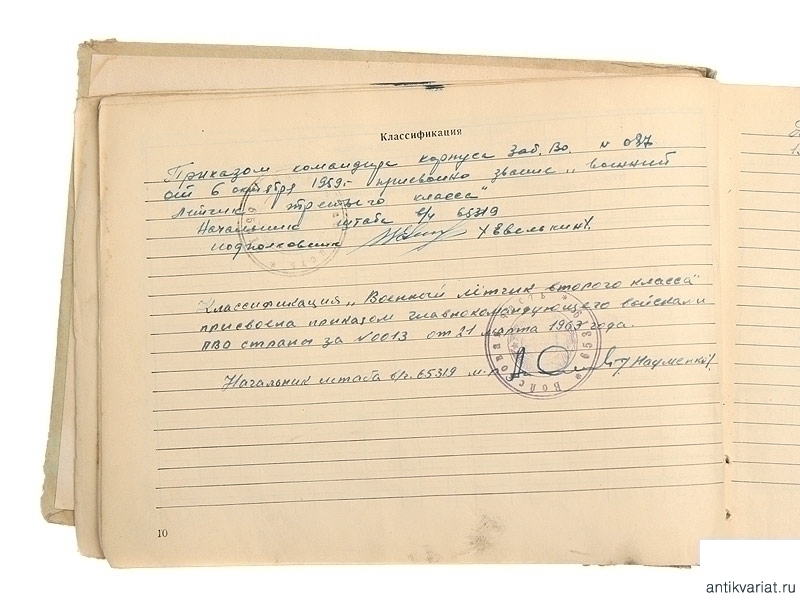 Классификация
Приказом командира корпуса Заб. Во. N 037
от 6 октября 1959г. присвоено звание „военный
лётчик третьего класса"
Начальник штаба в/ч 65319
подполковник /Евелькин/.
Классификация „Военный лётчик второго класса"
присвоена приказом главнокомандующего войсками
ПВО страны за N 0013 от 21 марта 1963 года.
Начальник штаба в/ч. 65319 /Науменко/.
10
antikvariat.ru